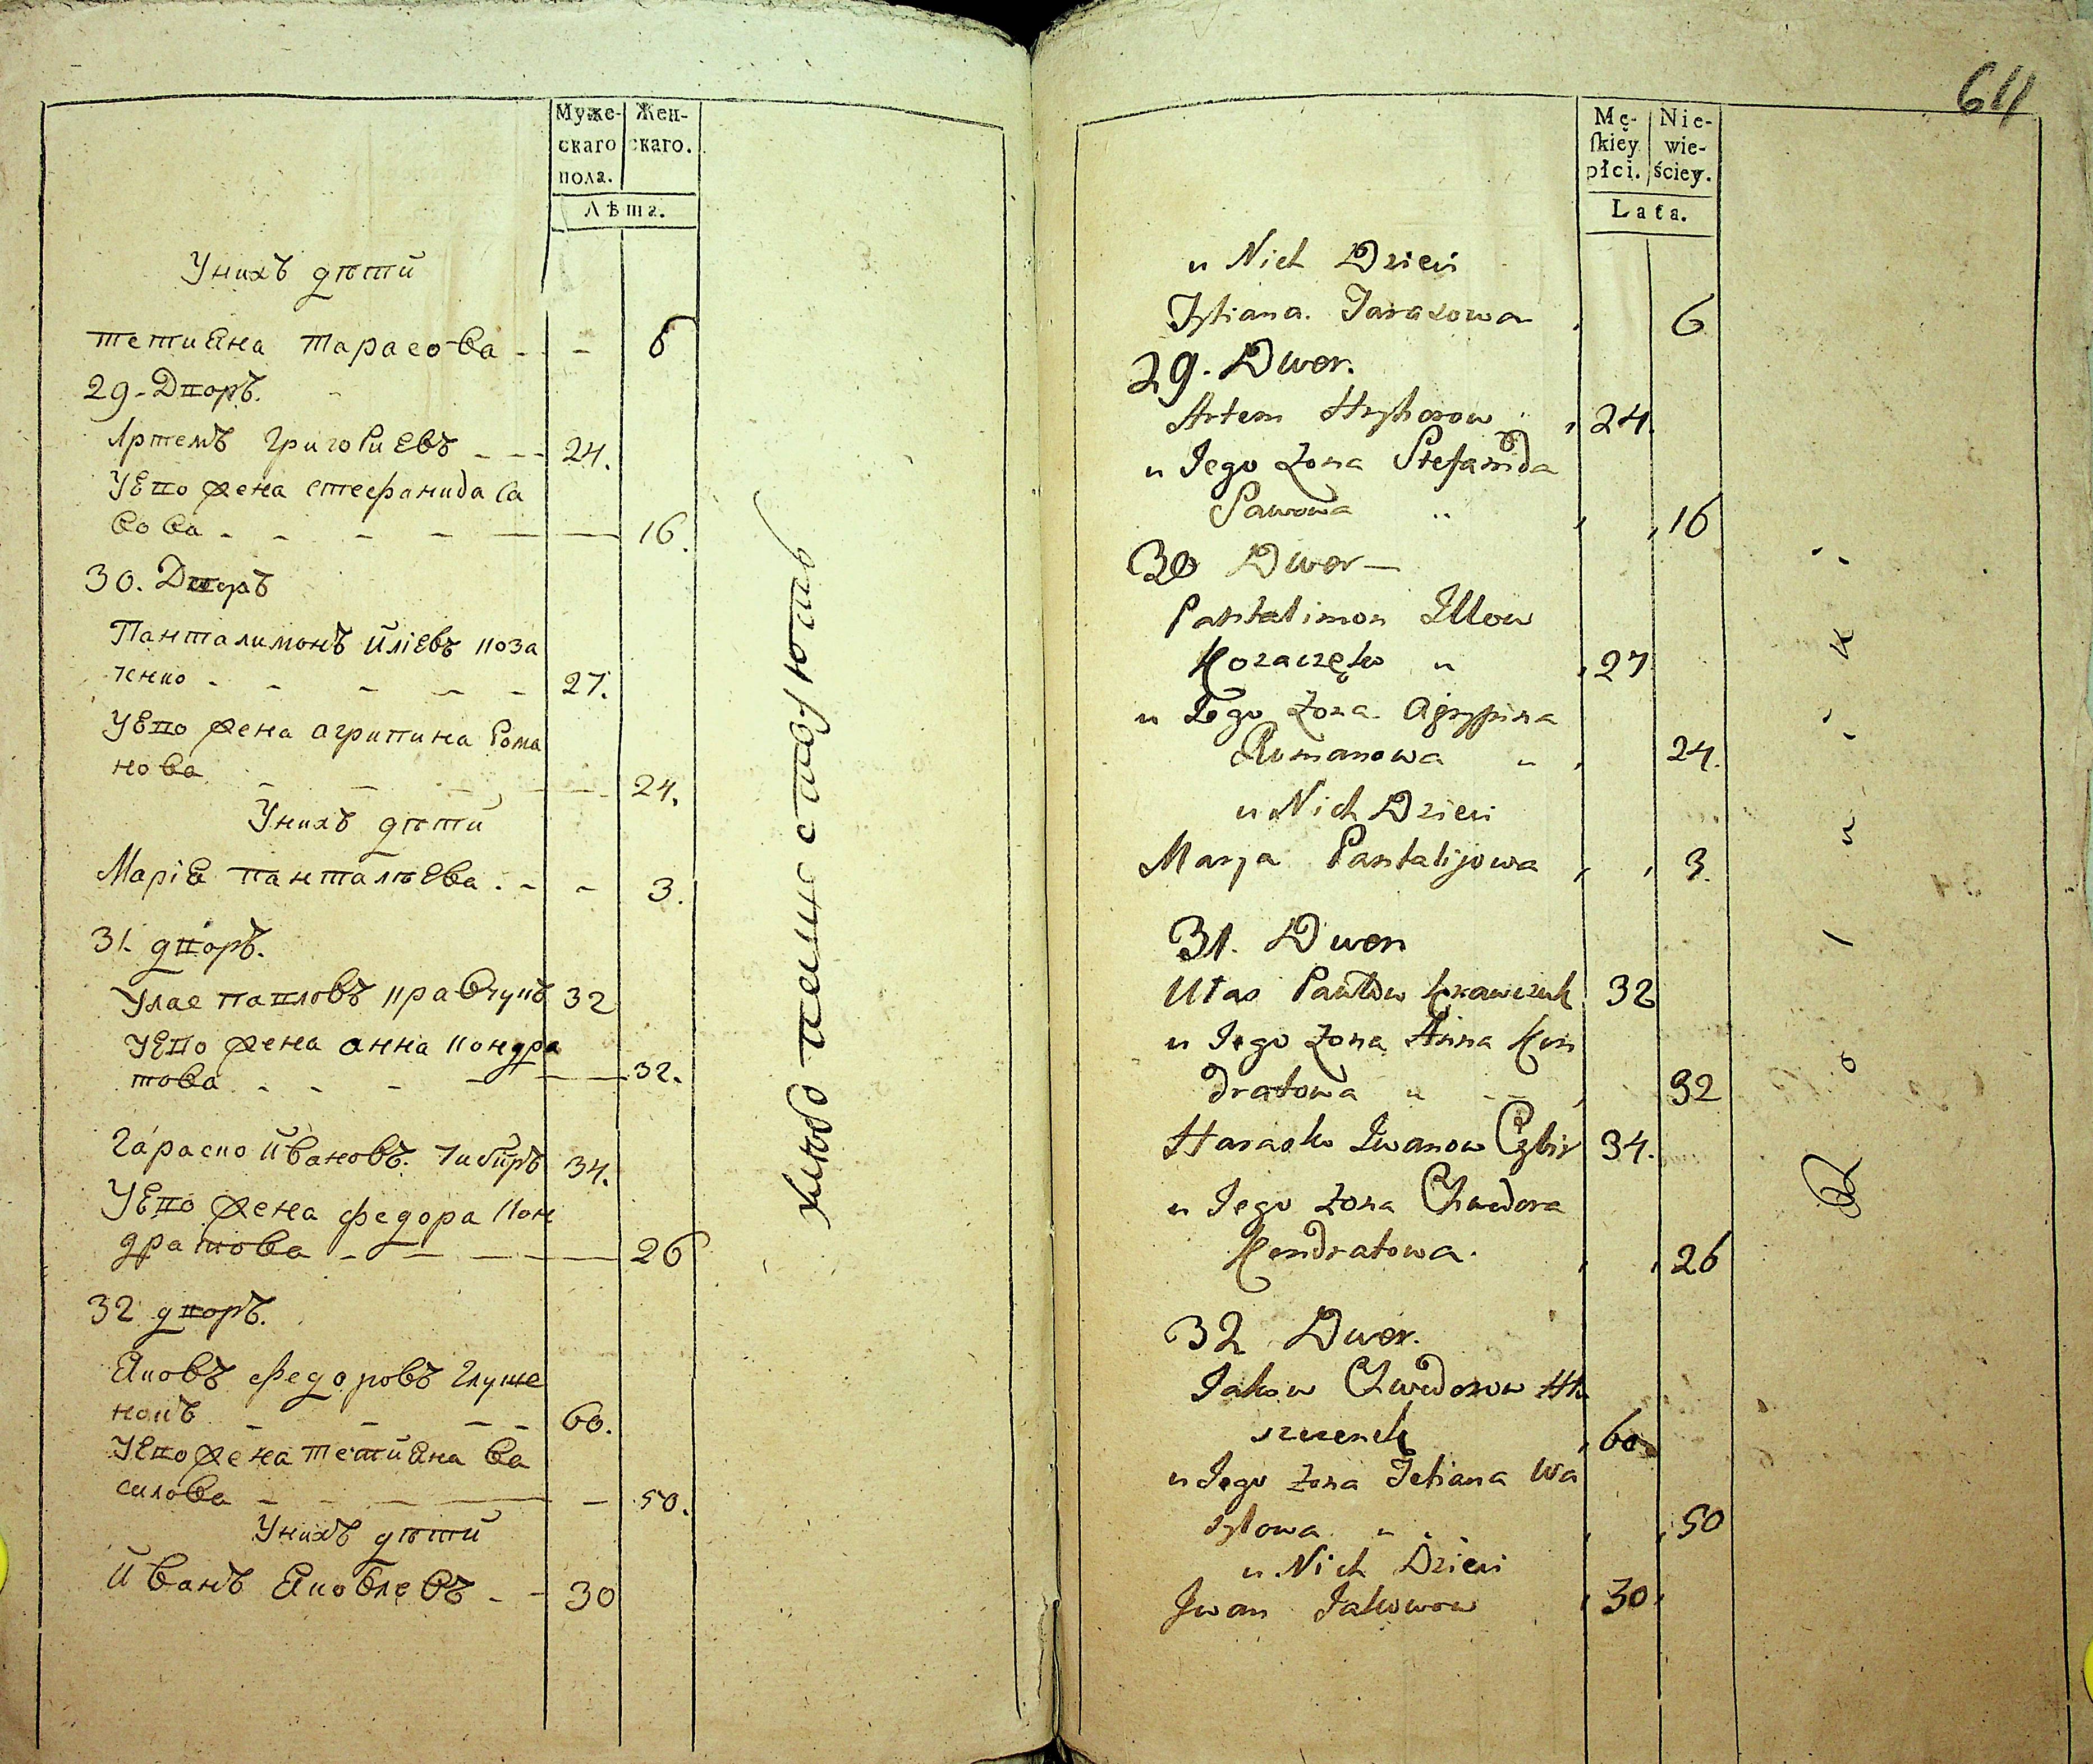 Муже-
скаго
пола.
Жен-
скаго.
Лѣта.
Унихъ дѣти
тетиана тарасова - - 6
29. Дворъ.
Артемъ григориевъ - - - 24.
Уево жена стефанида са
вова - - - - 16.
30. Дворъ
Панталимонъ илиевъ коза
ченко - - - - - 27.
Уево жена агрипина рома
нова - - - - - 24.
Унихъ дѣти
Маріа панталѣева. - - 3.
31. дворъ.
Улас павловъ кравчукъ 32
Уево жена анна кондра
това - - - - 32.
гараско ивановъ. чибиръ 34.
Уево жена федора кон
дратова - - - 26
32 дворъ.
Яковъ федоровъ глуще
нокъ - - - - 60.
Уево жена тетиана ва
силова - - - - 50.
Унихъ дѣти
иванъ яковлевъ - - 30
64
Mę-
ſkiey
płci.
Nie-
wie-
ściey.
Lata.
u Nich Dzieci
Tytiana. Tarasowa 6
29. Dwor.
Artem Hryhorow 24.
u Jego Zona Stefanida
Sawowa 16
30 Dwor
Pantalimon Illow
Kozaczęko 27
u Jego Zona Agrypina
Romanowa 24.
u Nich Dzieci
Marya Pantalijowa 3.
31. Dwor
Ułas Pawłow Krawczuk 32
u Jego Zona Anna Kon
dratowa 32
Harasko Iwanow Czybir 34.
u Jego Zona Chwedora
Kondratowa. 26
32 Dwor.
Jakow Chwedorow Hłu
szczenok 60
u Jego Zona Tetiana Wa
sylowa 50
u Nich Dzieci
Iwan Jakowow 30